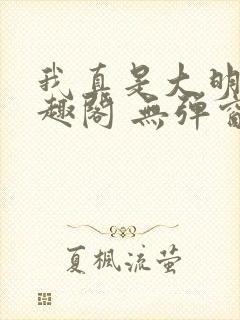 我真是大明
趣阁 無彈窗
夏楓流萤